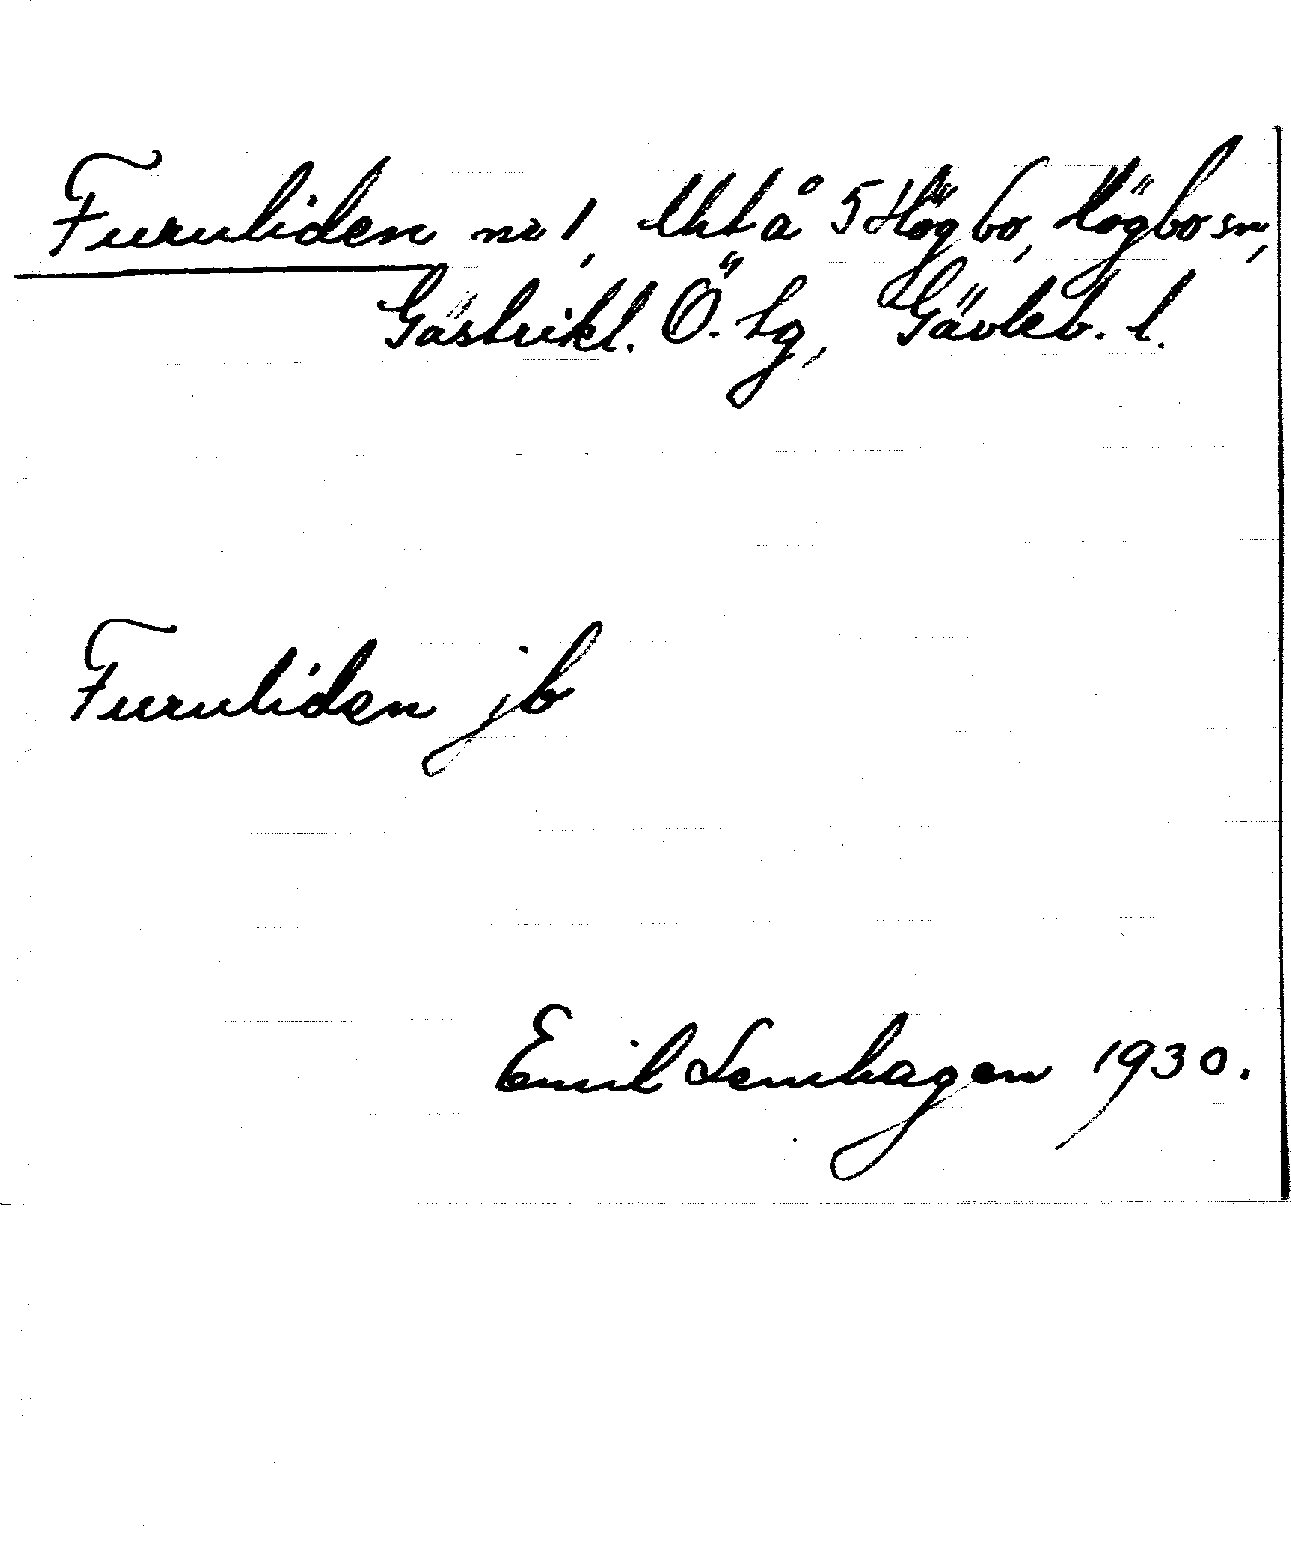 Furuliden nr 1, lht å 5 Högbo, Högbo sn,
Gästrikl. Ö. tg, Gävleb. l.
Furuliden jb
Emil Lenhagen 1930.